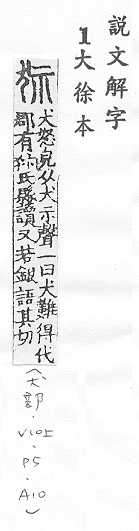 説文解字
1大徐本
狋
犬怒皃从犬示聲一曰犬難得代
郡有狋氏縣讀又若銀語其切
(犬部・V10上・P5・A10)